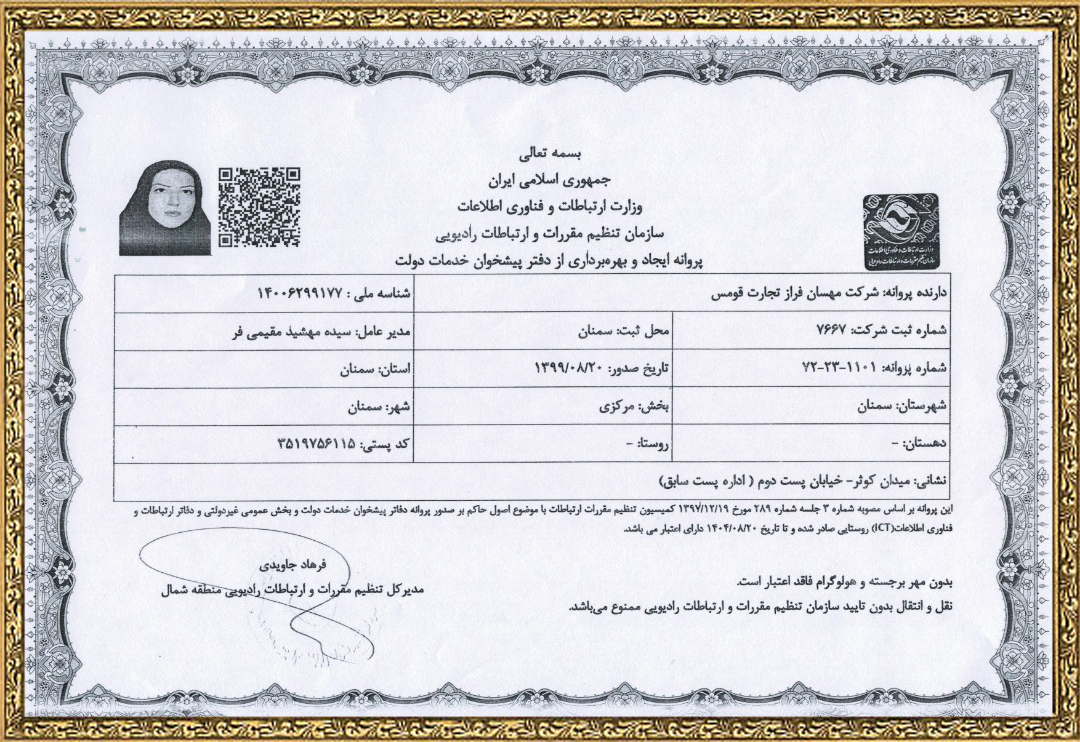 بسمه تعالی
جمهوری اسلامی ایران
وزارت ارتباطات و فناوری اطلاعات
سازمان تنظیم مقررات و ارتباطات رادیویی
پروانه ایجاد و بهره‌برداری از دفتر پیشخوان خدمات دولت
وزارت ارتباطات و فناوری اطلاعات
سازمان تنظیم مقررات و ارتباطات رادیویی
دارنده پروانه: شرکت مهسان فراز تجارت قومس شناسه ملی : ۱۴۰۰۶۲۹۹۱۷۷
شماره ثبت شرکت: ۷۶۶۷ محل ثبت: سمنان مدیر عامل: سیده مهشید مقیمی فر
شماره پروانه: ۱۱۰۱-۲۳-۷۲ تاریخ صدور: ۱۳۹۹/۰۸/۲۰ استان: سمنان
شهرستان: سمنان بخش: مرکزی شهر: سمنان
دهستان: - روستا: - کد پستی: ۳۵۱۹۷۵۶۱۱۵
نشانی: میدان کوثر- خیابان پست دوم ( اداره پست سابق)
این پروانه بر اساس مصوبه شماره ۳ جلسه شماره ۲۸۹ مورخ ۱۳۹۷/۱۲/۱۹ کمیسیون تنظیم مقررات ارتباطات با موضوع اصول حاکم بر صدور پروانه دفاتر پیشخوان خدمات دولت و بخش عمومی غیردولتی و دفاتر ارتباطات و
فناوری اطلاعات(ICT) روستایی صادر شده و تا تاریخ ۱۴۰۴/۰۸/۲۰ دارای اعتبار می باشد.
بدون مهر برجسته و هولوگرام فاقد اعتبار است.
نقل و انتقال بدون تایید سازمان تنظیم مقررات و ارتباطات رادیویی ممنوع می‌باشد.
فرهاد جاویدی
مدیرکل تنظیم مقررات و ارتباطات رادیویی منطقه شمال